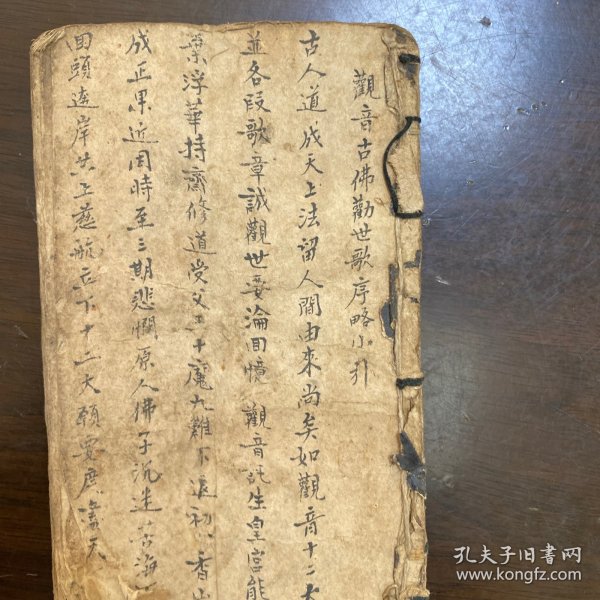 觀音古佛勸世歌序略小引
古人道成天上法留人間由來尚矣如觀音十二大
並各段歌章誠觀世要淪回憶觀音託生皇宮能
棄浮華持齋修道受父王十魔九難不退初香山
成正果近因時至三期悲憫原人佛子沉迷苦海
回頭達岸共上慈航立下十二大願要度滿天
孔夫子旧书网
www.kongfz.com